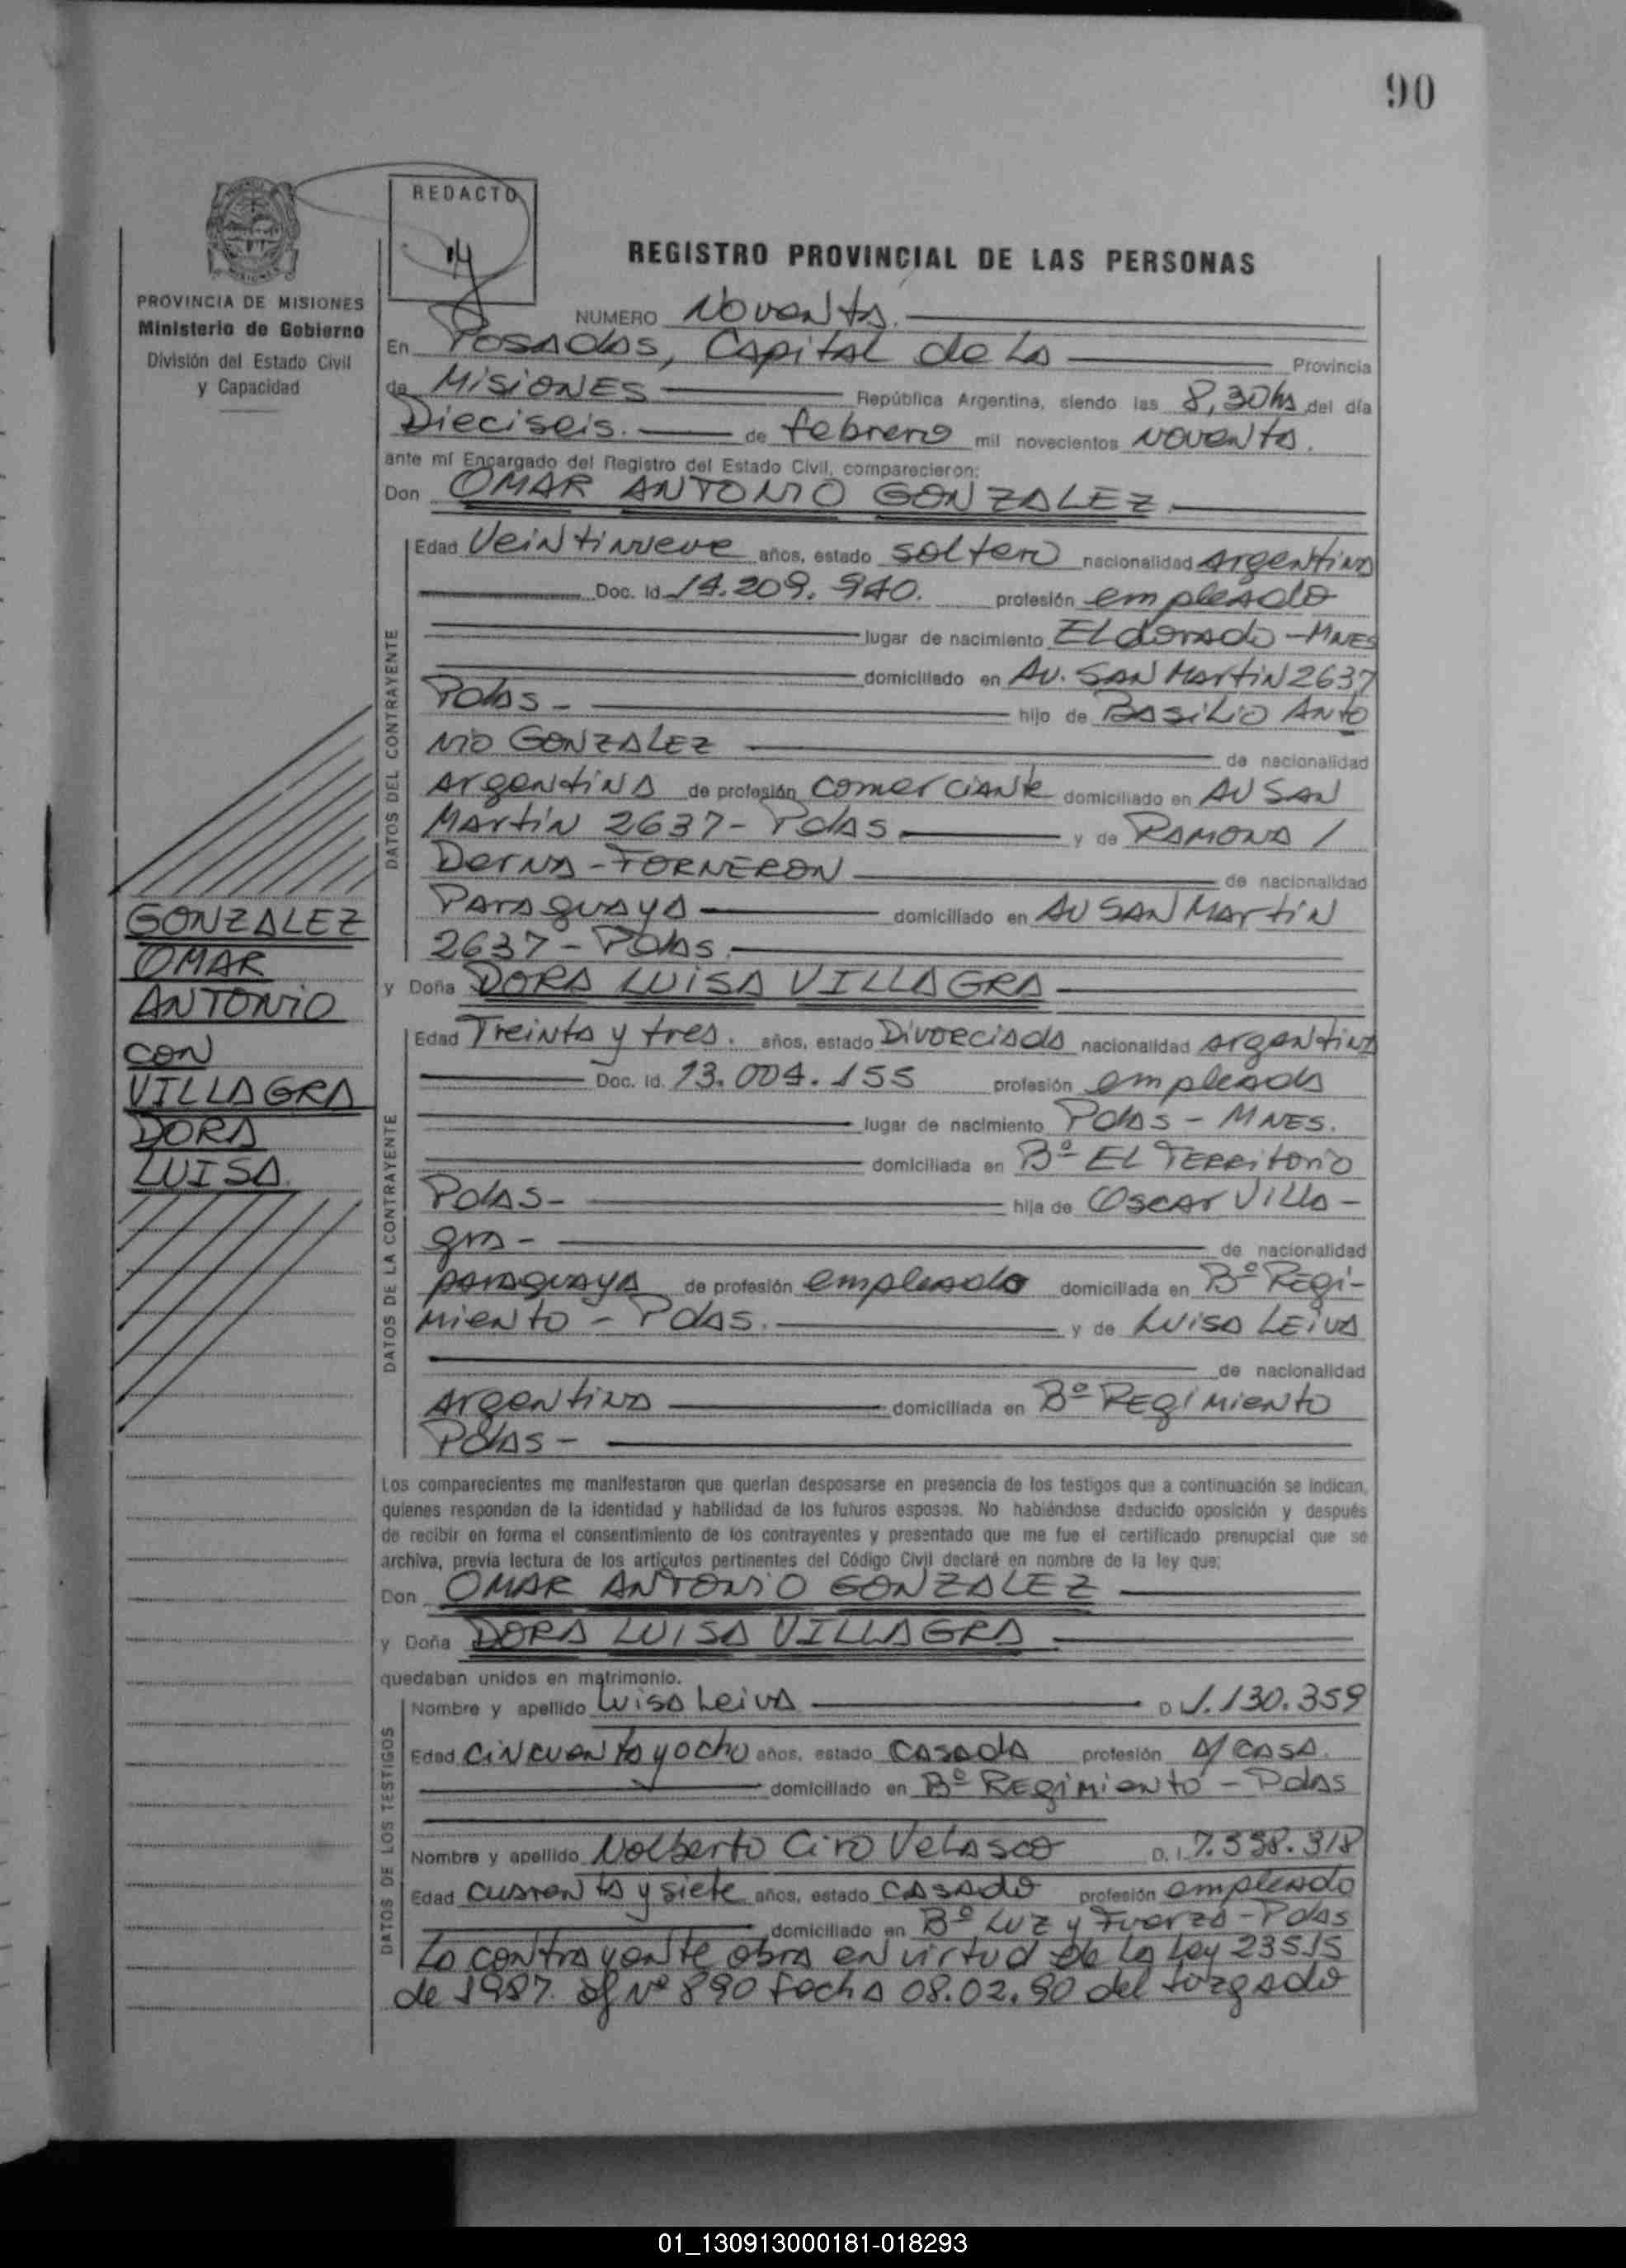 90
REDACTO
REGISTRO PROVINCIAL DE LAS PERSONAS
PROVINCIA DE MISIONES
Ministerio de Gobierno
División del Estado Civil
y Capacidad
NUMERO Noventa.
En Posadas, Capital de la Provincia
de Misiones República Argentina, siendo las 8,30hs del día
Dieciseis. de febrero mil novecientos noventa.
ante mí Encargado del Registro del Estado Civil, comparecieron:
Don OMAR ANTONIO GONZALEZ
DATOS DEL CONTRAYENTE
Edad Veintinueve años, estado soltero nacionalidad argentina
Doc. Id. 14.209.940. profesión empleado
lugar de nacimiento Eldorado - Mnes
domiciliado en Av. San Martin 2637
Pdas - hijo de Basilio Anto
nio Gonzalez de nacionalidad
argentina de profesión comerciante domiciliado en Av San
Martin 2637 - Pdas. y de Ramona /
Derna - Forneron de nacionalidad
Paraguaya domiciliado en Av San Martin
2637 - Pdas.
y Doña DORA LUISA VILLAGRA
GONZALEZ
OMAR
ANTONIO
CON
VILLAGRA
DORA
LUISA
DATOS DE LA CONTRAYENTE
Edad Treinta y tres. años, estado Divorciada nacionalidad argentina
Doc. Id. 13.004.155 profesión empleada
lugar de nacimiento Pdas - Mnes.
domiciliada en Bº El Territorio
Pdas - hija de Oscar Villa -
gra - de nacionalidad
paraguaya de profesión empleado domiciliada en Bº Regi-
miento - Pdas. y de Luisa Leiva
de nacionalidad
Argentina domiciliada en Bº Regimiento
Pdas -
Los comparecientes me manifestaron que querían desposarse en presencia de los testigos que a continuación se indican,
quienes responden de la identidad y habilidad de los futuros esposos. No habiéndose deducido oposición y después
de recibir en forma el consentimiento de los contrayentes y presentado que me fue el certificado prenupcial que se
archiva, previa lectura de los artículos pertinentes del Código Civil declaré en nombre de la ley que:
Don OMAR ANTONIO GONZALEZ
y Doña DORA LUISA VILLAGRA
quedaban unidos en matrimonio.
DATOS DE LOS TESTIGOS
Nombre y apellido Luisa Leiva D.I. 1.130.359
Edad cincuenta y ocho años, estado casada profesión A/casa.
domiciliado en Bº Regimiento - Pdas
Nombre y apellido Nolberto Ciro Velasco D.I. 7.558.318
Edad cuarenta y siete años, estado casado profesión empleado
domiciliado en Bº Luz y Fuerza - Pdas
La contrayente obra en virtud de la Ley 23515
de 1987. of Nº 890 fecha 08.02.90 del Juzgado
01_130913000181-018293